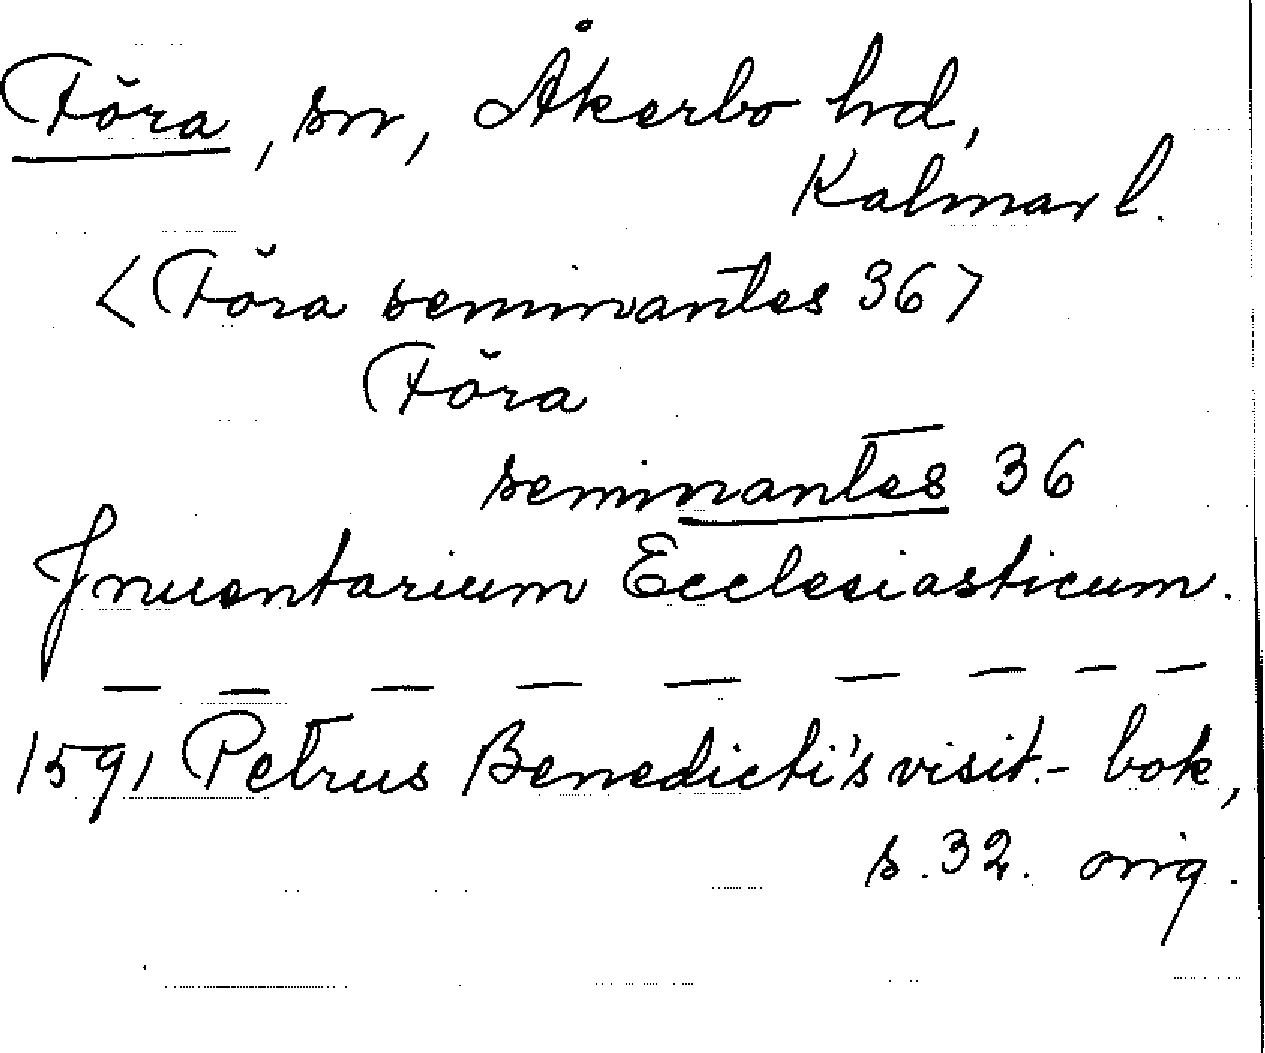 Föra, sn, Åkerbo hd,
Kalmar l.
<Föra seminantes 36>
Föra
seminantes 36
Jnuentarium Ecclesiasticum.
— — — — — — — — —
1591 Petrus Benedicti's visit.- bok,
s. 32. orig.